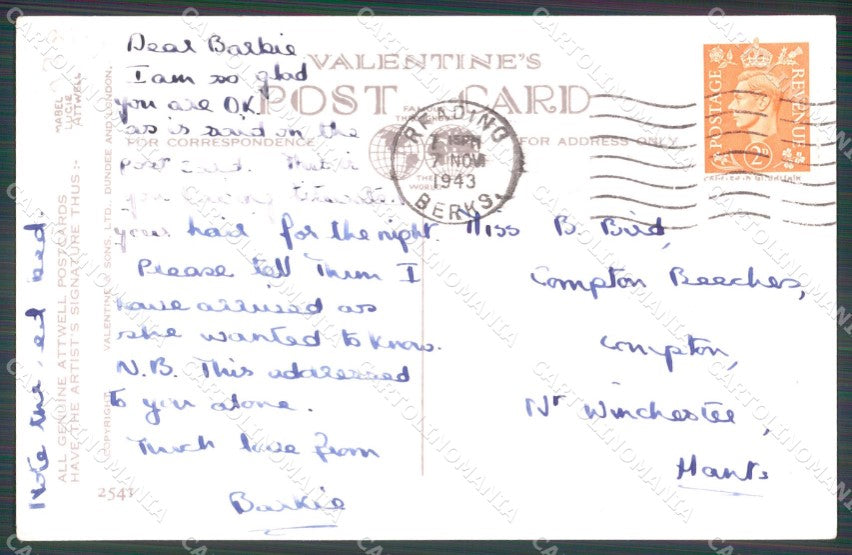 Dear Barkie
I am so glad
you are O.K.
as is said on the
post card.
you
your hair for the night.
Please tell Mum I
have arrived as
she wanted to know.
N.B. This addressed
to you alone.
Much love from
Barkie
Note the red
VALENTINE'S
POST CARD
FOR CORRESPONDENCE
FOR ADDRESS ONLY
READING
15 PM
7 NOV
1943
BERKS.
POSTAGE
REVENUE
2D
Miss B. Bird,
Compton Beeches,
Compton,
Nr Winchester,
Hants
MABEL
LUCIE
ATTWELL
ALL GENUINE ATTWELL POSTCARDS
HAVE THE ARTIST'S SIGNATURE THUS:-
COPYRIGHT. VALENTINE & SONS, LTD., DUNDEE AND LONDON.
2541
CARTOLINOMANIA